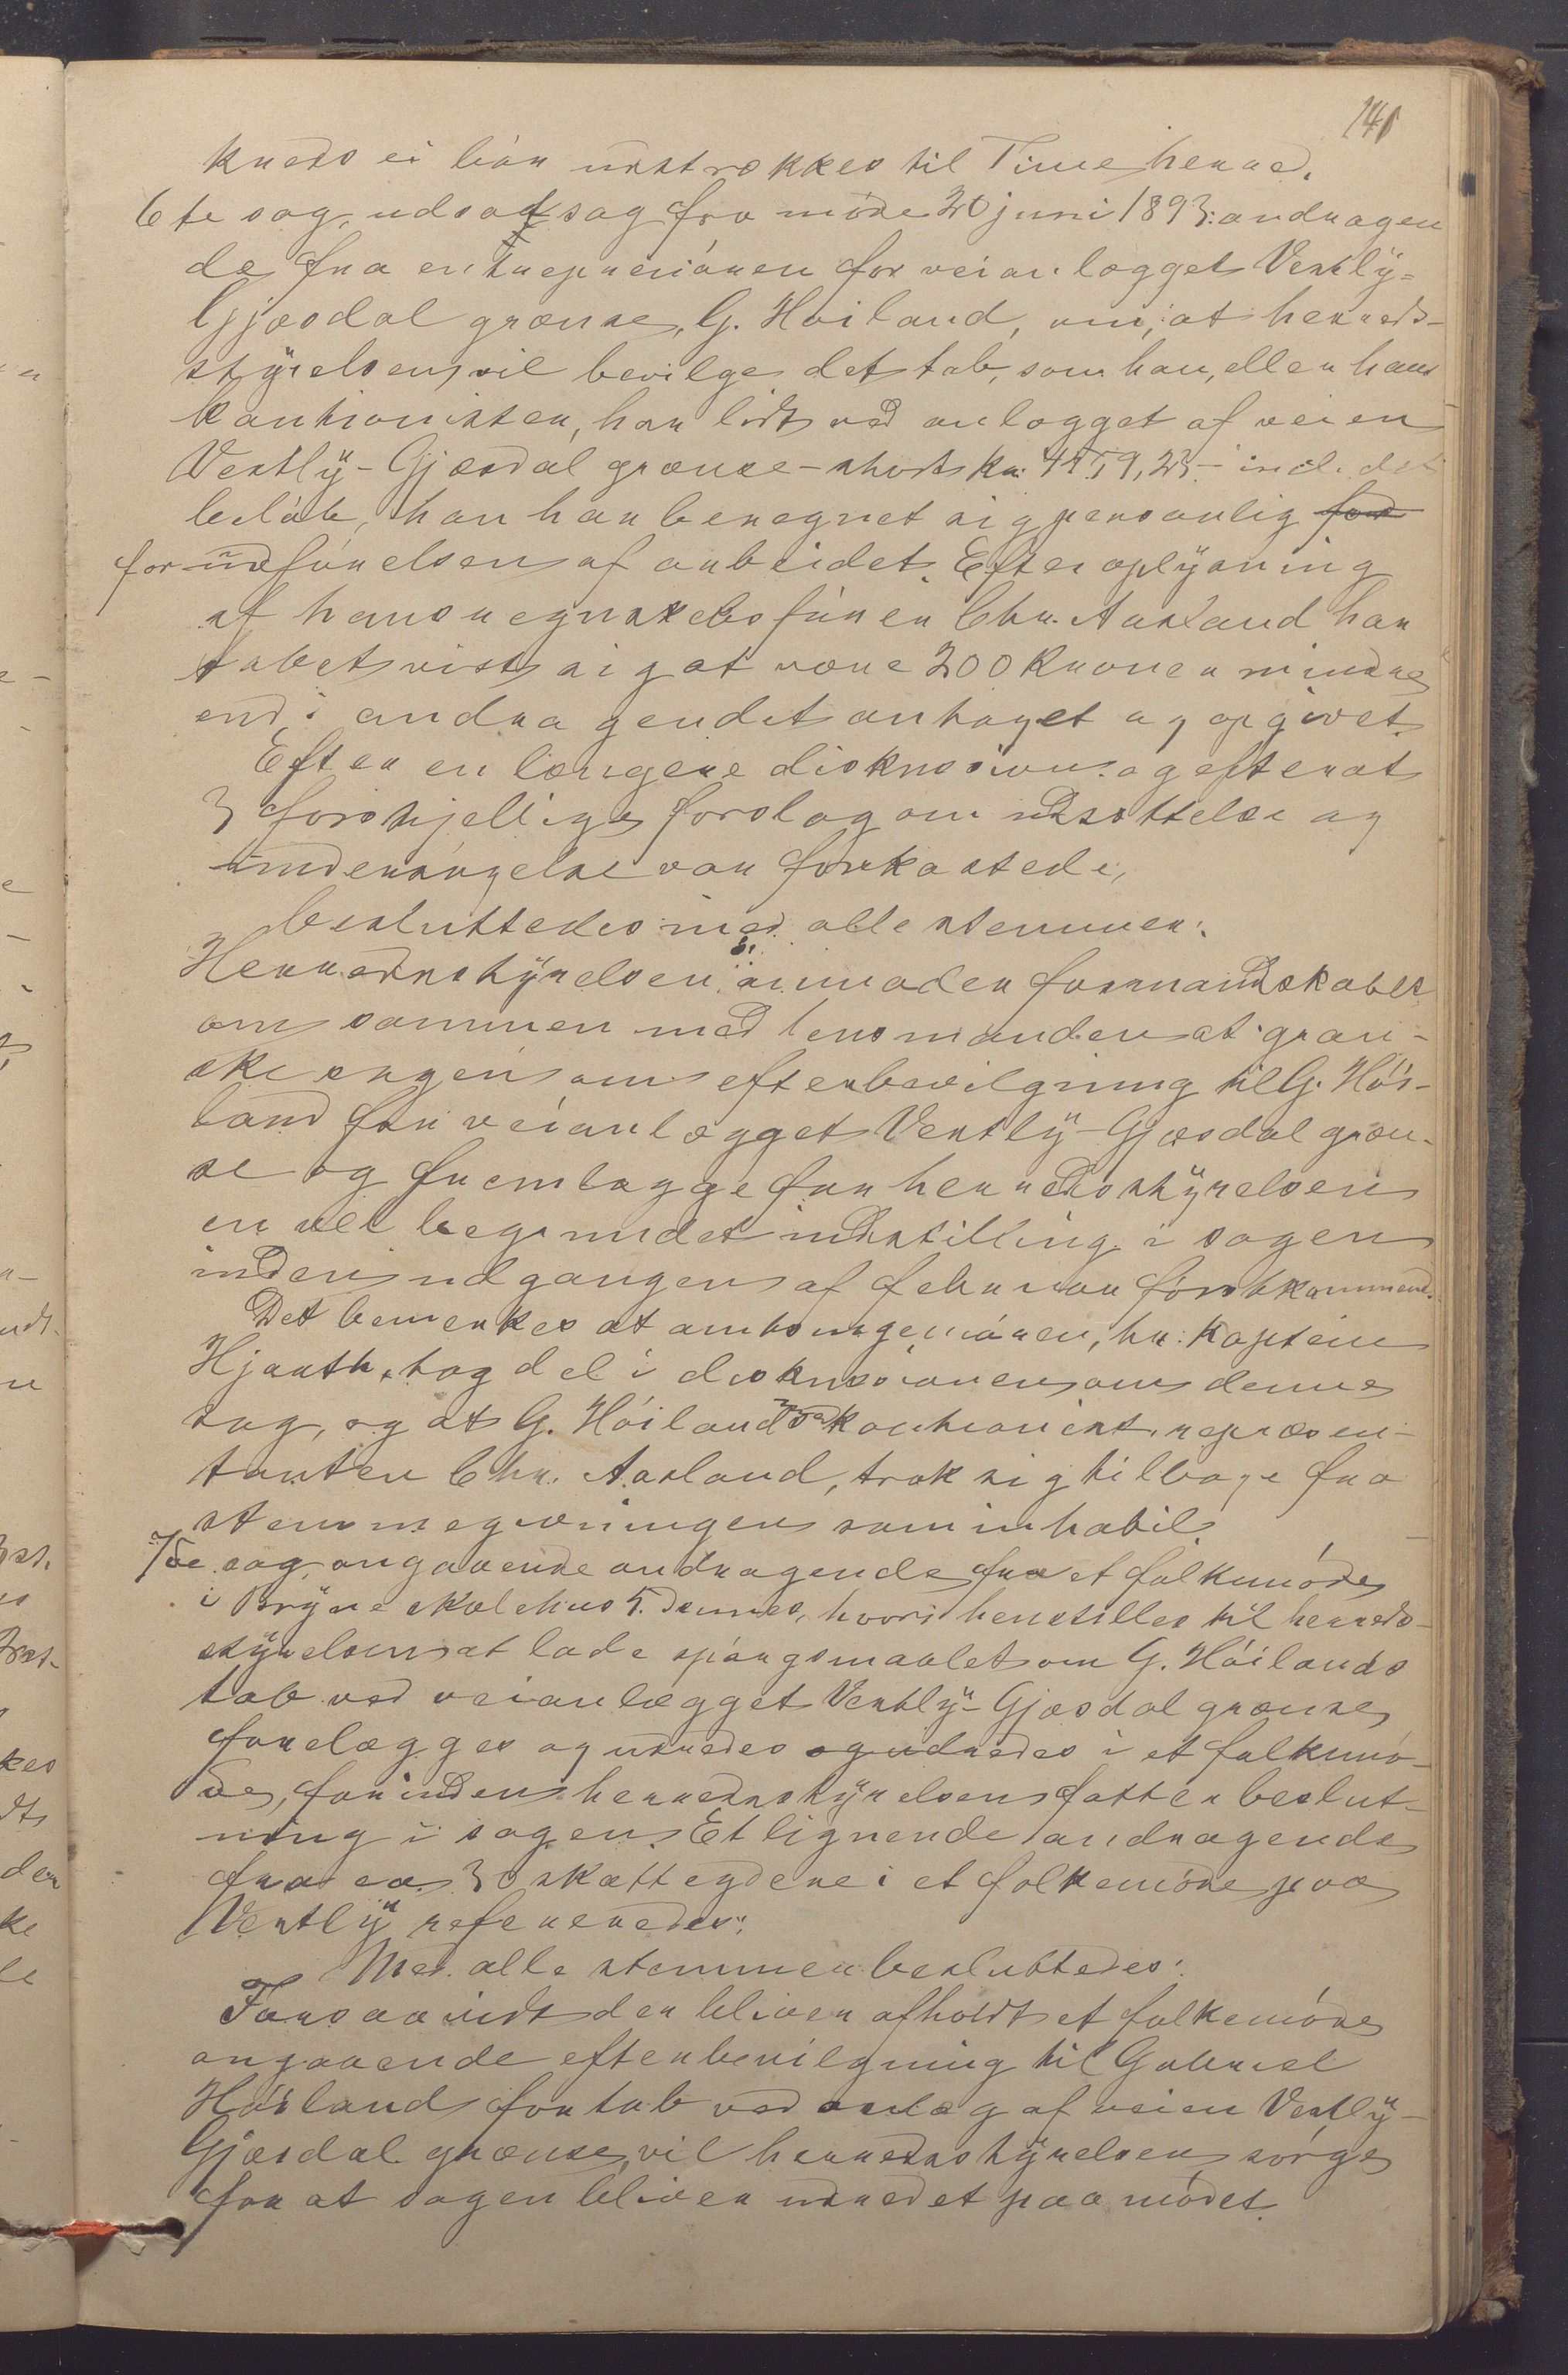 141
kreds ei bör udstrækkes til Time herred.
6te sag, udsat sag fra möde 20 juni 1893: andragen
de fra entreprenören for veianlægget Vestly-
Gjæsdal grænse, G. Höiland, om, at herreds-
styrelsen vil bevilge det tab, som han, eller hans
kautionister, har lidt ved anlægget af veien
Vestly-Gjæsdal grænse - stort kr. 4159,23 - incl. det
belöb, han har beregnet sig personlig for
for udförelsen af arbeidet. Efter oplysning
af hans regnskabsförer Chr. Aarland har
tabet vist sig at være 200 kroner mindre
end i andragendet antaget og opgivet.
Efter en længere diskussion og efterat
3 forskjellige forslag om udsættelse og
indenrögelse var forkastede,
besluttedes med alle stemmer:
Herredsstyrelsen anmoder formandskabet
om sammen med lensmanden at gran-
ske sagen om efterbevilgning til G. Höi-
land for veianlægget Vestly-Gjæsdal græn-
se og fremlægge for herredsstyrelsen
en vel begrundet indstilling i sagen
inden udgangen af februar förstkommende.
Det bemerkes at amtsingeniören, hr. kaptein
Hjorth, tog del i diskussionen om denne
sag, og at G. Höilands kautionist, repræsen-
tanten Chr. Aarland, trak sig tilbage fra
stemmegivningen som inhabil.
7de sag, angaaende andragende fra et folkemöde
i Bryne skolehus 5. dennes, hvori henstilles til herreds-
styrelsen at lade spörgsmaalet om G. Höilands
tab ved veianlægget Vestly-Gjæsdal grænse
forelægges og udredes og udredes i et folkemö-
de, forinden herredsstyrelsen fatter beslut-
ning i sagen. Et lignende andragende
fra ca. 30 skatteydere i et folkemöde paa
Vestly refereredes.
Med alle stemmer besluttedes:
Forsaavidt der bliver afholdt et folkemöde
angaaende efterbevilgning til Gabriel
Höiland for tab ved anlæg af veien Vestly-
Gjæsdal grænse, vil herredsstyrelsen sörge
for at sagen bliver udredet paa mödet.